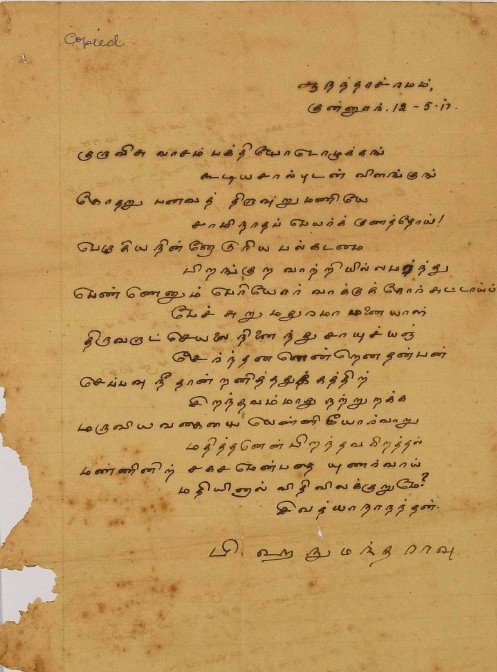 Copied
ஆநந்தாச்ரமம்,
குன்னூர். 12-5-17.
குருவிசு வாசம் பக்தியோடொழுக்கங்
கூடியசால்புடன் விளங்குங்
கோதறு பனவத் திருவுறுமணியே
சாமிநாதப் பெயர்க் குணத்தோய்!
பெருகியநின்னோ டுரிய பல்கடமை
பிறங்குற வாற்றியில்லமர்ந்து
பெண்ணெனும் பெரியோர் வாக்குக்கோர்சுட்டாய்ப்
பேச்சுறு மதுரமா மனையாள்
திருவருட் செயலை நினைந்து சாயுச்யஞ்
சேர்ந்தனளென்றென தன்பன்
செப்பவு நீதான்றனித்ததுக்கத்திற்
சிறந்தவம்மாது நற்றுறக்க
மருவிய வகையை யெண்ணியோர்வாறு
மதித்தனென் பிறந்தவ ரிறத்தல்
மண்ணினிற் சகசமென்பதை யுணர்வாய்
மதியினால் விதிவிலக்குறுமே?
சிவத்யாநாநந்தன்.
பி. ஹநுமந்தராவு